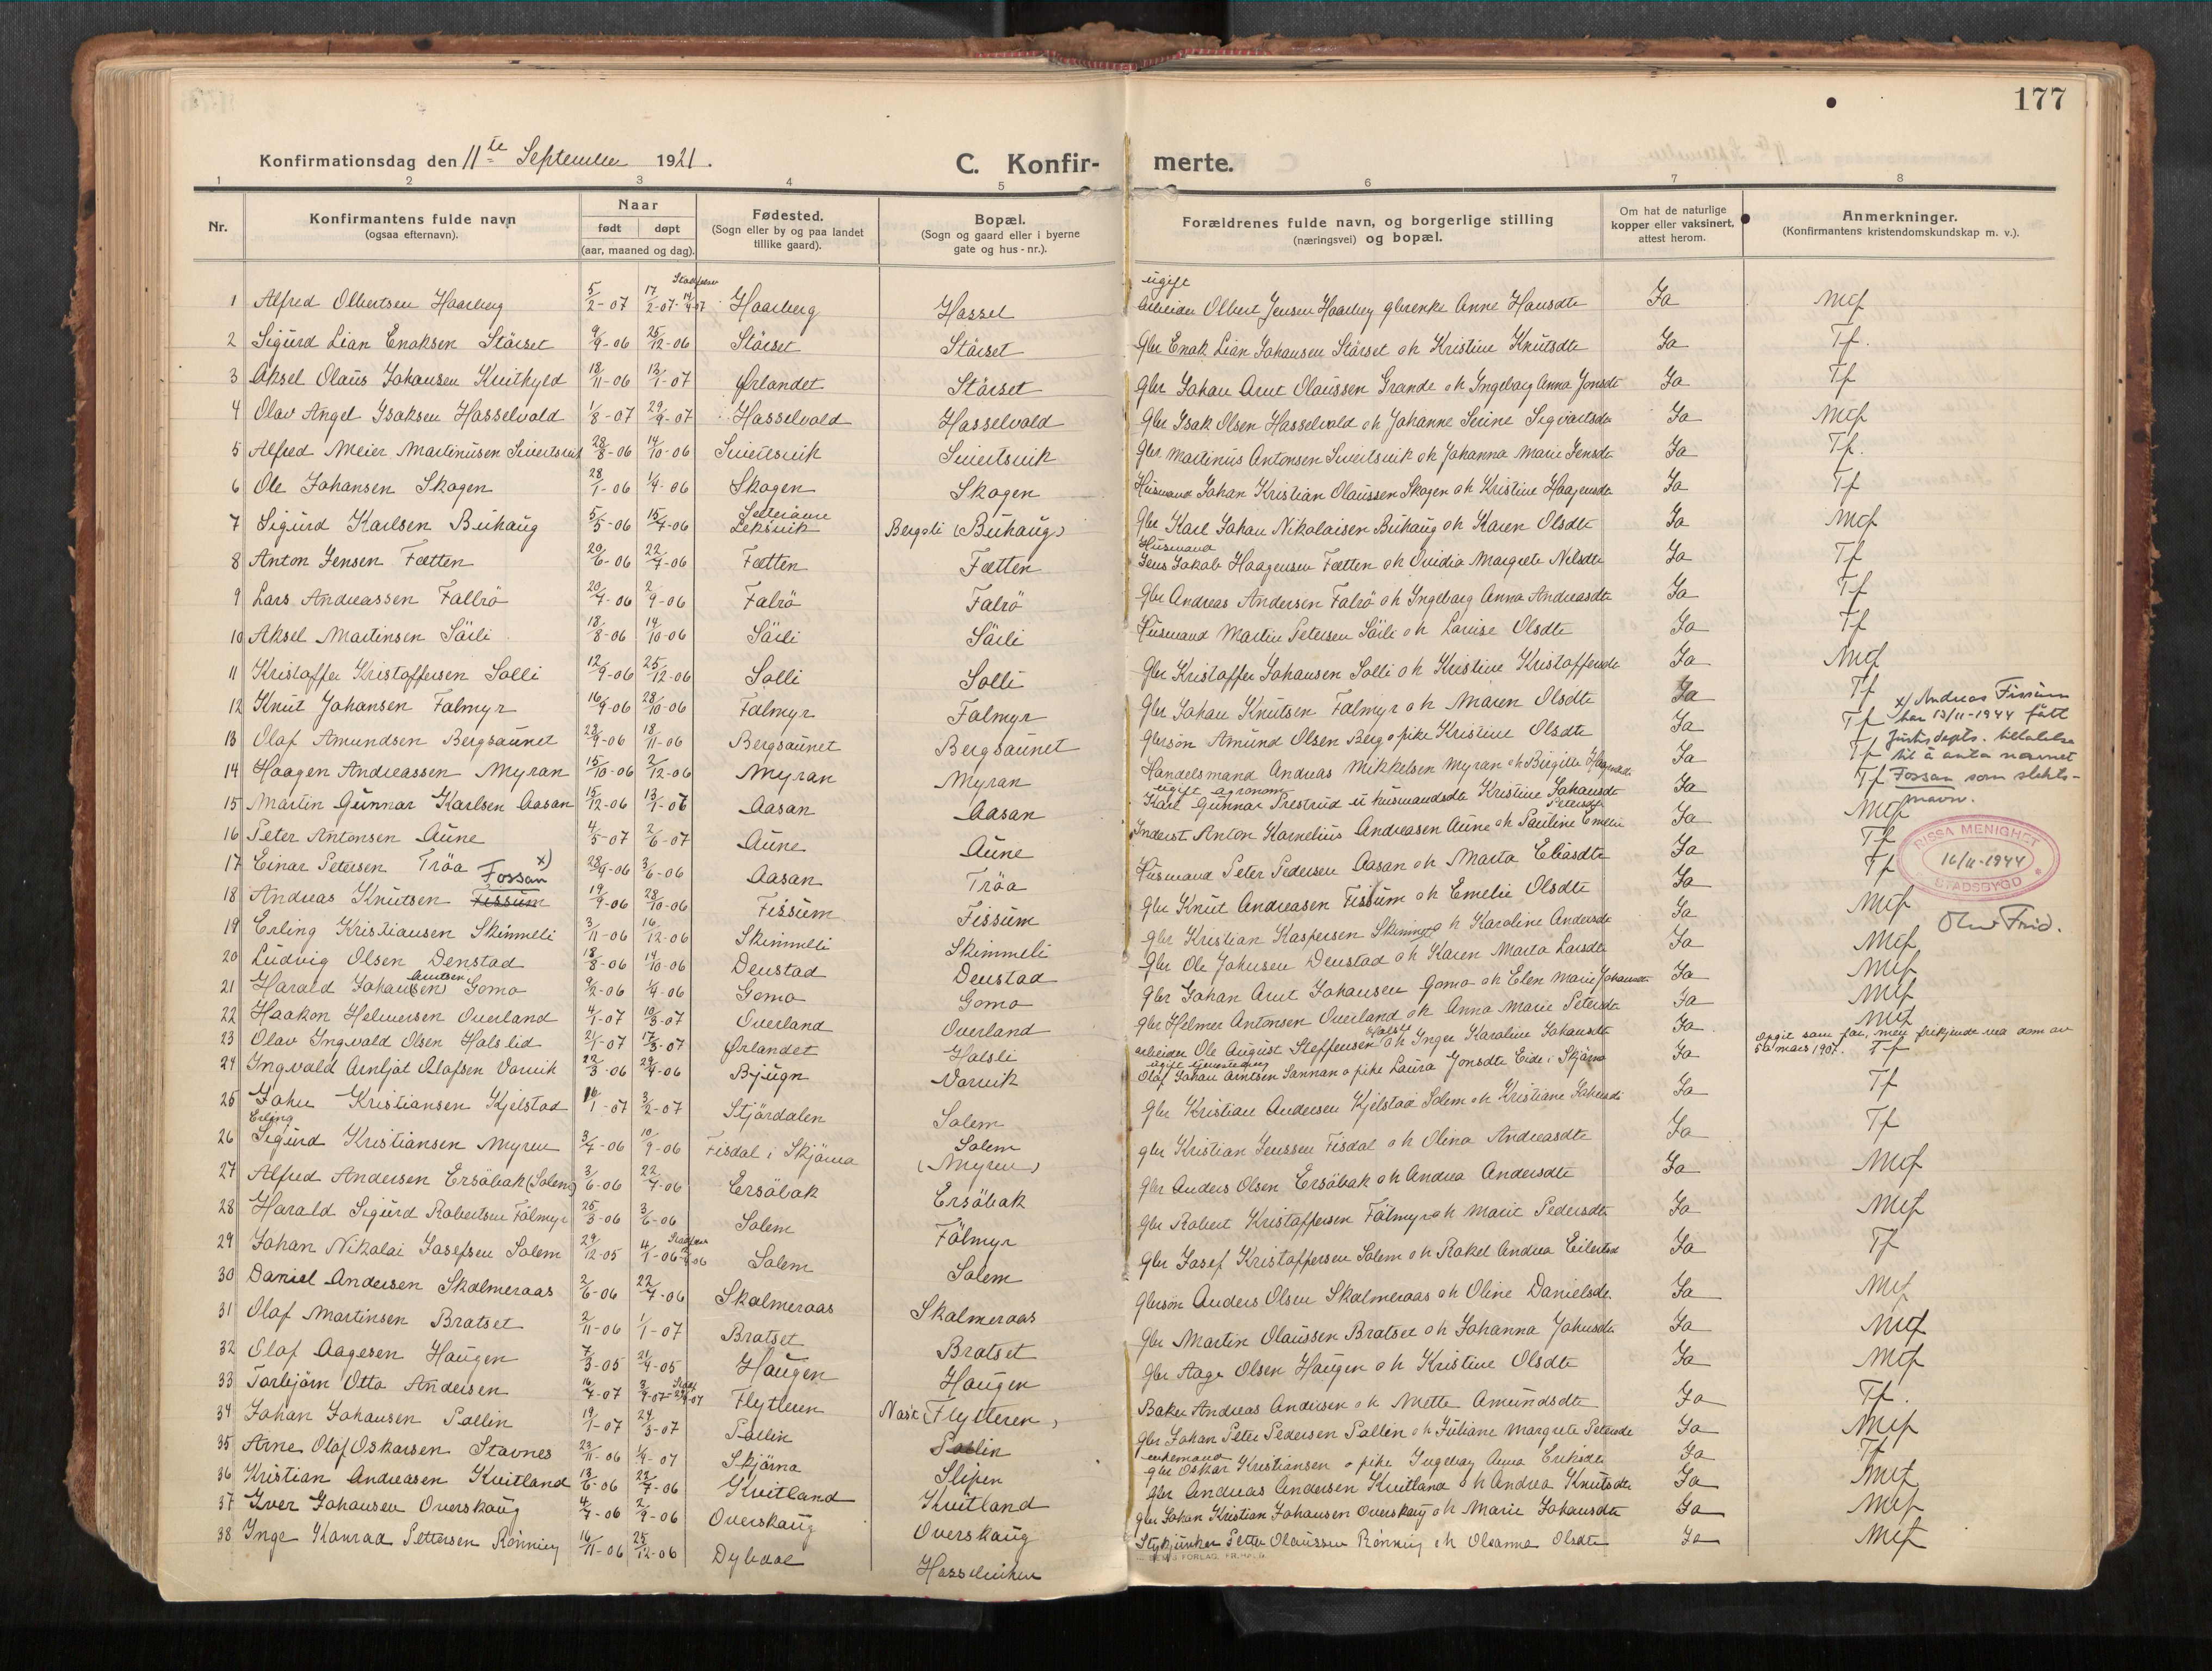 177
Konfirmationsdag den 11te September 1921.
C. Konfir- merte.
1 2 3 4 5 6 7 8
Nr.
Konfirmantens fulde navn (ogsaa efternavn).
Naar
født døpt
(aar, maaned og dag).
Fødested. (Sogn eller by og paa landet tillike gaard).
Bopæl. (Sogn og gaard eller i byerne gate og hus-nr.).
Forældrenes fulde navn, og borgerlige stilling (næringsvei) og bopæl.
Om hat de naturlige kopper eller vaksinert, attest herom.
Anmerkninger. (Konfirmantens kristendomskundskap m. v.).
1 Alfred Olbertsen Haarberg 5/2-07 17/2-07 Haarberg Hassel ugift arbeider Olbert Jensen Haarberg gbrenke Anne Hansdtr Ja Mcf
2 Sigurd Lian Enoksen Störset 9/9-06 25/12-06 Störset Störset Gbr Enok Lian Johansen Störset oh Kristine Knutsdtr Ja Tf.
3 Aksel Olaus Johansen Kvithyld 18/11-06 13/1-07 Ørlandet Störset Gbr Johan Arnt Olaussen Grande oh Ingeborg Anna Jonsdtr Ja Tf
4 Olav Angel Isaksen Hasselvold 1/8-07 29/9-07 Hasselvold Hasselvold Gbr Isak Olsen Hasselvold oh Johanne Serine Sigvartsdtr Ja Mcf
5 Alfred Meier Martinusen Sivertsvik 28/8-06 14/10-06 Sivertsvik Sivertsvik Gbr Martinus Antonsen Sivertsvik oh Johanna Marie Jensdtr Ja Tf.
6 Ole Johansen Skogen 28/1-06 1/4-06 Skogen Skogen Husmand Johan Kristian Olaussen Skogen oh Kristine Haagensdtr Ja Tf
7 Sigurd Karlsen Buhaug 5/5-06 15/7-06 Leksvik Bergsli (Buhaug) Gbr Karl Johan Nikolaisen Buhaug oh Karen Olsdtr Ja Mcf
8 Anton Jensen Fætten 20/6-06 22/7-06 Fætten Fætten Husmand Jens Jakob Haagensen Fætten oh Ovidia Margrete Nilsdtr Ja Tf
9 Lars Andreassen Fallrö 20/7-06 2/9-06 Falrö Falrö Gbr Andreas Andersen Falrö oh Ingeborg Anna Andreasdtr Ja Tf
10 Aksel Martinsen Sörli 18/8-06 14/10-06 Sörli Sörli Husmand Martin Petersen Sörli oh Lovise Olsdtr Ja Tf
11 Kristoffer Kristoffersen Solli 12/9-06 25/12-06 Solli Solli Gbr Kristoffer Johansen Solli oh Kristine Kristoffersdtr Ja Mcf
12 Knut Johansen Falmyr 16/9-06 28/10-06 Falmyr Falmyr Gbr Johan Knutsen Falmyr oh Maren Olsdtr Ja Tf
13 Olaf Amundsen Bergsaunet 28/9-06 18/11-06 Bergsaunet Bergsaunet Gbrsön Amund Olsen Berg o pike Kristine Olsdtr Ja Tf
14 Haagen Andreassen Myran 15/10-06 2/12-06 Myran Myran Handelsmand Andreas Mikkelsen Myran oh Birgitte Haagensdtr Ja Tf
15 Martin Gunnar Karlsen Aasan 15/12-06 13/1-07 Aasan Aasan ugift agronom Karl Gunnar Prestrud u husmandsdtr Kristine Johansdtr Ja Tf
16 Peter Antonsen Aune 4/5-07 2/6-07 Aune Aune Inderst Anton Kornelius Andreasen Aune oh Pauline Emelie Petersdtr Ja Mcf
17 Einar Petersen Tröa 28/4-06 3/6-06 Aasan Tröa Husmand Peter Pedersen Aasan oh Marta Eliasdtr Ja Tf
18 Andreas Knutsen Fissum Fossan x) 19/9-06 28/10-06 Fissum Fissum Gbr Knut Andreasen Fissum oh Emelie Olsdtr Ja Tf
x/ Andreas Fissum
har 13/11-1944 fått
Justisdepts. tillatelse
til å anta navnet
Fossan som slekts-
navn.
RISSA MENIGHET
16/11-1944
STADSBYGD
19 Erling Kristiansen Skimmeli 3/11-06 16/12-06 Skimmeli Skimmeli Gbr Kristian Kaspersen oh Karoline Andersdtr Ja Mcf
20 Ludvig Olsen Denstad 18/8-06 14/10-06 Denstad Denstad Gbr Ole Johnsen Denstad oh Karen Marta Larsdtr Ja Mcf
21 Harald Johansen Arntsen Gomo 9/2-06 1/4-06 Gomo Gomo Gbr Johan Arnt Johansen Gomo oh Elen Marie Johansdtr Ja Mcf
22 Haakon Helmersen Overland 4/1-07 10/3-07 Overland Overland Gbr Helmer Antonsen Overland oh Anna Marie Petersdtr Ja Mcf
23 Olav Ingvald Olsen Halslid 21/1-07 17/3-07 Ørlandet Halsli arbeider Ole August Steffensen oh Inger Karoline Johansdtr Ja Mcf
24 Ingvald Arnljot Olafsen Varvik 22/3-06 29/4-06 Bjugn Varvik Olaf Johan Arntsen Sannan o pike Laura Jonsdtr Eide i Skjörna Ja Opgit som far, men frikjendt ved dom av 5te mars 1907. Tf
25 John Kristiansen Kjelstad 16/1-07 3/2-07 Stjördalen Solem Gbr Kristian Andersen Kjelstad Solem oh Kristiane Johansdtr Ja Tf
26 Erling Sigurd Kristiansen Myren 3/7-06 10/9-06 Fisdal i Skjörna Solem (Myren) gbr Kristian Jenssen Fisdal oh Olina Andreasdtr Ja Tf
27 Alfred Andersen Ersöbak (Solem) 3/6-06 22/7-06 Ersöbak Ersöbak Gbr Anders Olsen Ersöbak oh Andrea Andersdtr Ja Mcf
28 Harald Sigurd Robertsen Fölmyr 25/3-06 3/6-06 Solem Fölmyr Gbr Robert Kristoffersen Fölmyr oh Marit Pedersdtr Ja Mcf
29 Johan Nikolai Josefsen Solem 29/12-05 4/1-06 Solem Solem Gbr Josef Kristoffersen Solem oh Rakel Andrea Eilertsd Ja Tf
30 Daniel Andersen Skalmeraas 2/6-06 22/7-06 Skalmeraas Skalmeraas Gbrsön Anders Olsen Skalmeraas oh Oline Danielsdr. Ja Mcf
31 Olaf Martinsen Bratset 2/11-06 1/1-07 Bratset Bratset Gbr Martin Olaussen Bratset oh Johanna Johnsdtr Ja Mcf
32 Olaf Aagesen Haugen 7/3-05 21/4-05 Haugen Haugen Gbr Aage Olsen Haugen oh Kristine Olsdtr Ja Mcf
33 Torbjörn Otto Andersen Flytteren (Flytteren) Baker Andreas Andersen oh Mette Amundsdtr Ja Tf.
34 Johan Johansen Pallin 19/1-07 24/3-07 Pallin Pallin Gbr Johan Peter Pedersen Pallin oh Juliane Margrete Petersdtr Ja Mcf
35 Arne Olaf Oskarsen Stavnes 23/11-06 1/4-07 Skjörna Slipen enkemand gbr Oskar Kristiansen o pike Ingeborg Anna Eriksdtr Ja Tf
36 Kristian Andreasen Kvitland 13/6-06 22/7-06 Kvitland Kvitland Gbr Andreas Andersen Kvitland oh Andrea Knutsdtr Ja Mcf
37 Iver Johansen Overskaug 4/7-06 2/9-06 Overskaug Overskaug gbr Johan Kristian Johansen Overskaug oh Marie Johansdtr Ja Mcf
38 Inge Konrad Pettersen Rönning 16/11-06 25/12-06 Dybdal Hasselviken Petter Olaussen Rönning oh Oleanna Olsdtr Ja Mcf